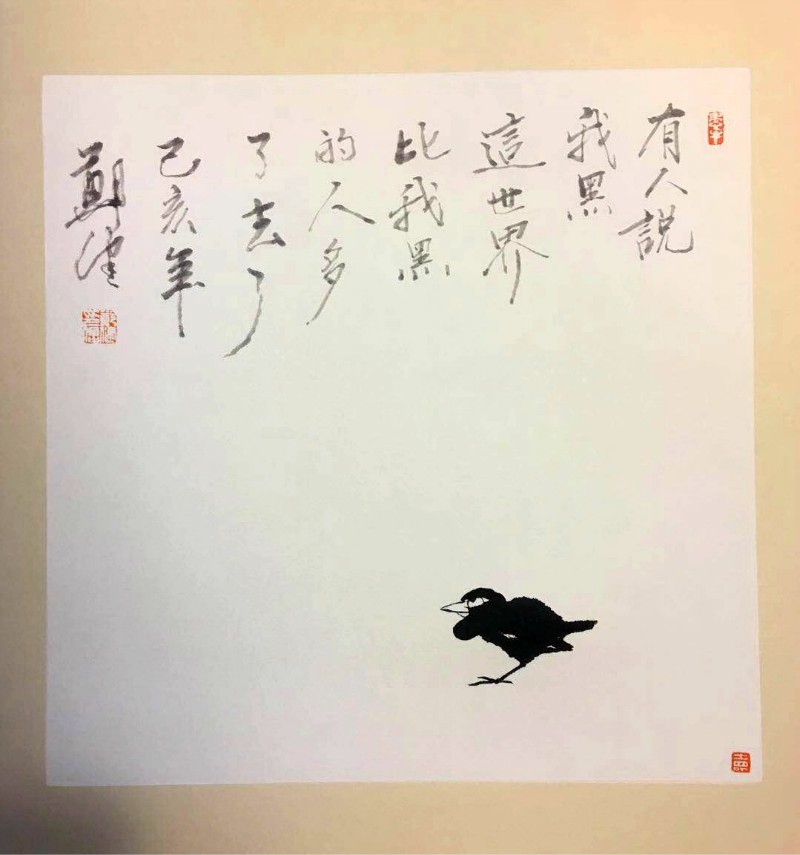 有人説
我黑
這世界
比我黑
的人多
了去了
己亥年
鄭津